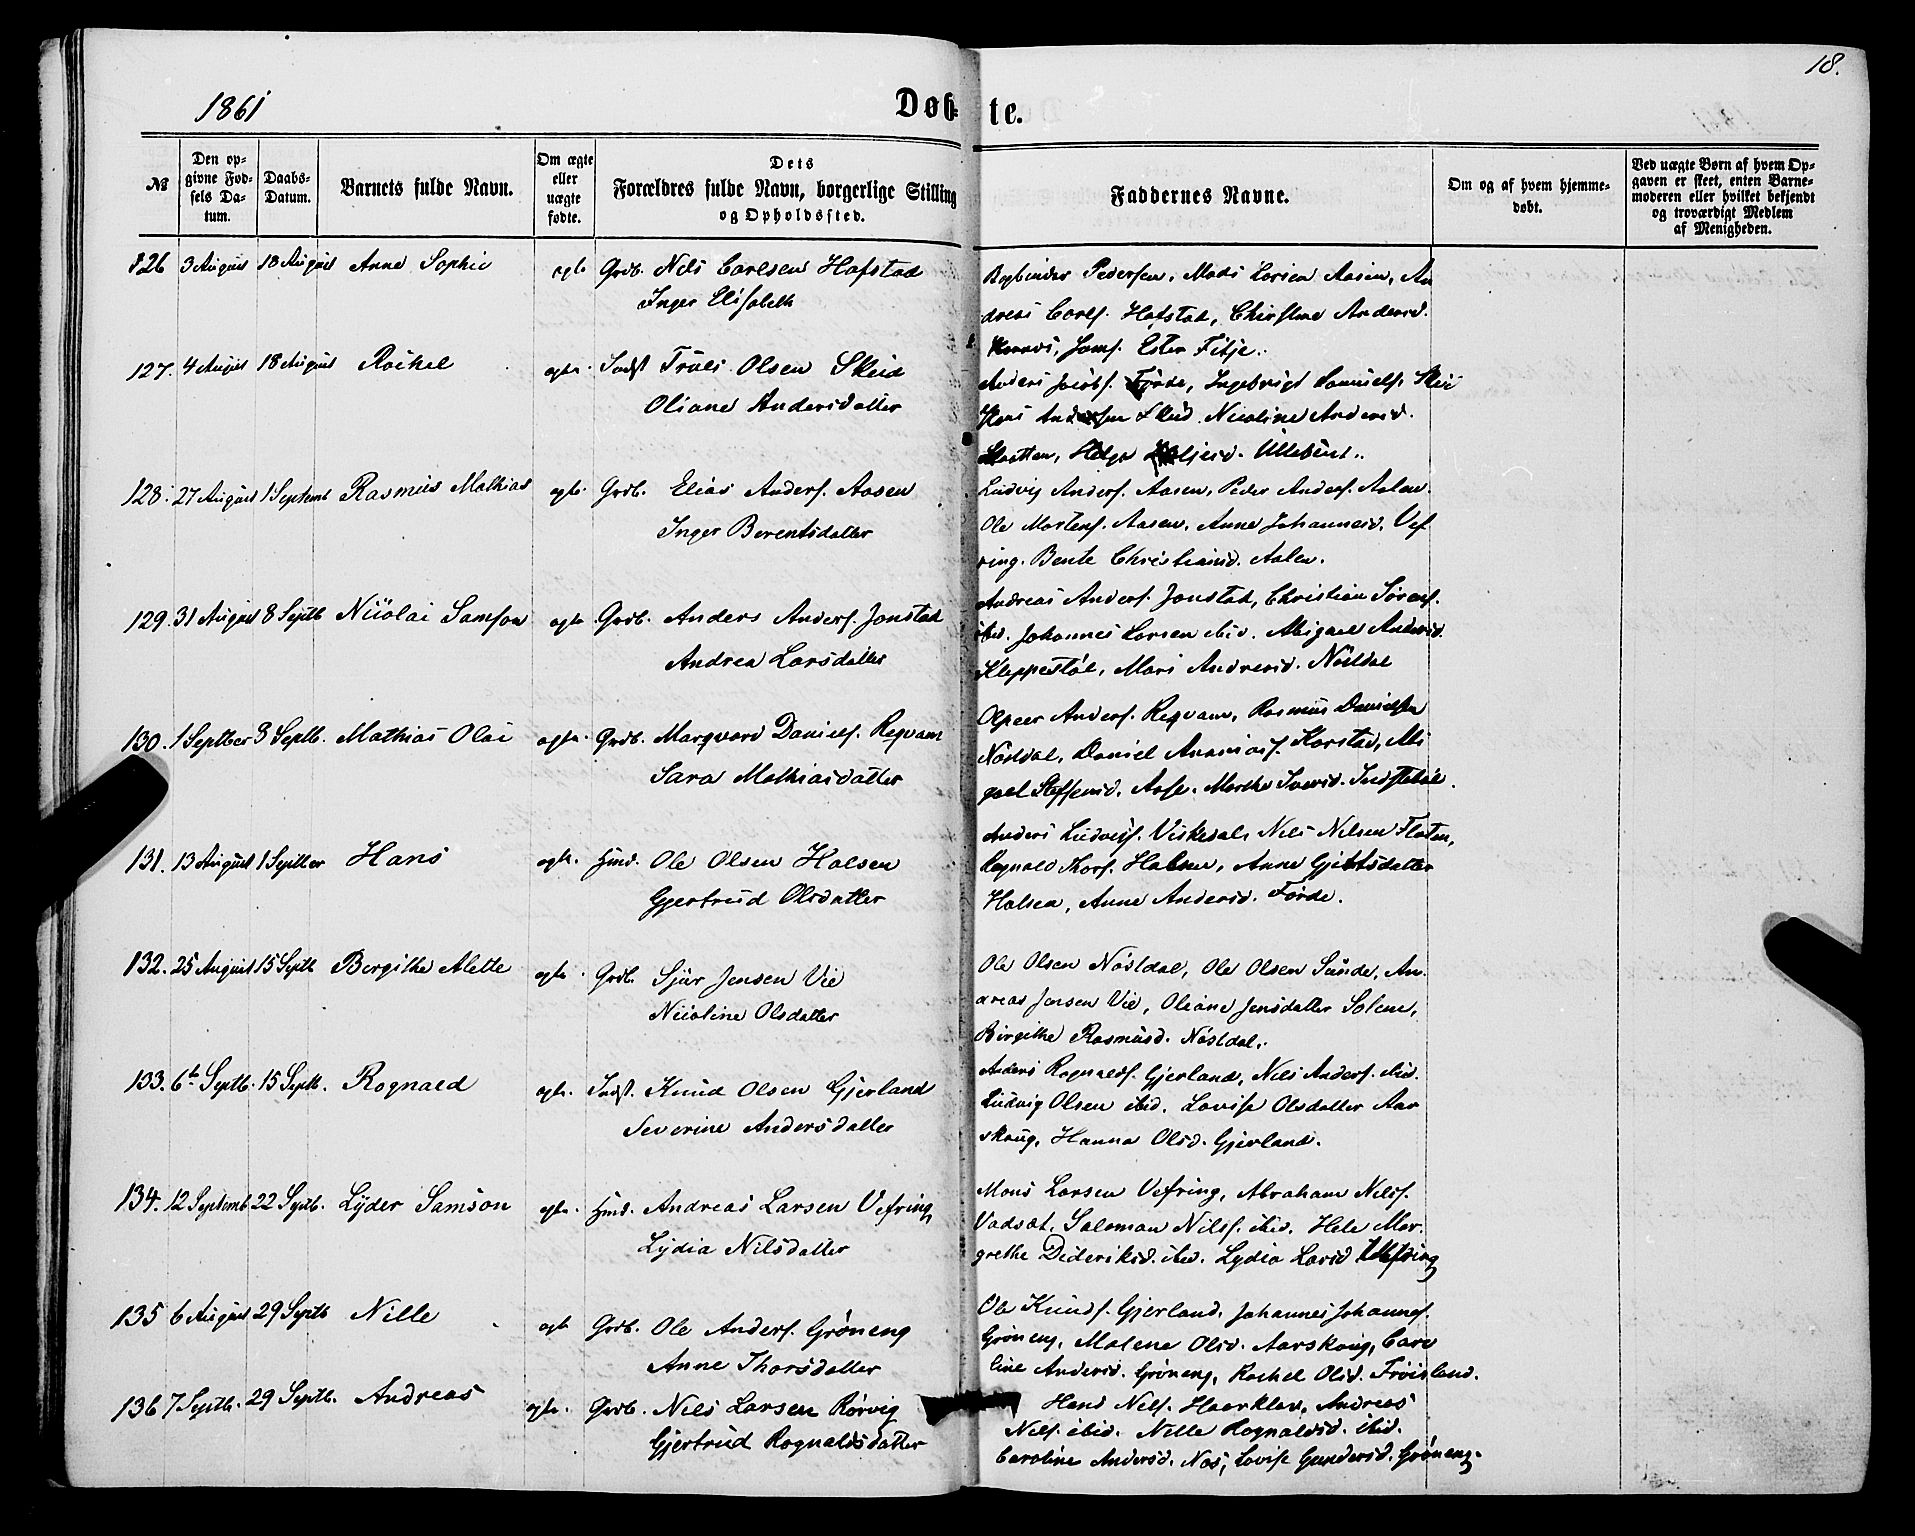 18.
1861
Døbte.
№
Den opgivne Fødsels Datum.
Daabs-Datum.
Barnets fulde Navn.
Om ægte eller uægte fødte.
Dets Forældres fulde Navn, borgerlige Stilling og Opholdssted.
Faddernes Navne.
Om og af hvem hjemmedøbt.
Ved uægte Børn af hvem Opgaven er skeet, enten Barnemoderen eller hvilket bekjendt og troværdigt Medlem af Menigheden.
126 3 August 18 August Anne Sophie ægte Grdb. Nils Carlsen Hafstad
Inger Elisabeth
Bogbinder Pedersen, Mads Larsen Aasen, An
dreas Carls. Hafstad, Christine Andersd.
Jomf. Ester Fitje.
127. 4 August 18 August Rachel ægte. Indst Truls Olsen Skid
Oliane Andersdatter
Anders Jacobs. Førde, Ingebrigt Samuels. Skei
Hans Andersen Skid Nicoline Andersd.
Helge Ullebust.
128. 27 August 1 Septemb Rasmus Mathias ægte. Grdb. Elias Anders. Aasen
Inger Berentsdatter
Ludvig Anders. Aasen, Peder Anders. Aalen.
Ole Mortens. Aasen, Anne Johannesd. Vef
ring. Bente Christiansd. Aalen.
129. 31 August 8 Septb Nicolai Samson ægte Grdb. Anders Anders. Jonstad
Andrea Larsdatter
Andreas Anders. Jonstad, Christian Sørens.
ibid. Johannes Larsen ibid. Abigael Andersd.
Kleppestøl, Mari Andreasd. Nøstdal
130. 1 Septber 3 Septb. Mathias Olai ægte. Grdb. Marqvard Daniels. Reqvam
Sara Mathiasdatter
Olpeer Anders. Reqvam, Rasmus Danielsen
Nøstdal, Daniel Ananias. Korstad, Abi
gael Steffensd. Aase. Marthe Iversd. Indstebøe.
131. 13 August 1 Septber Hans ægte. Huud. Ole Olsen Halsen
Gjertrud Olsdatter
Anders Ludvigs. Viskedal Nils Nilsen Flaten,
Rognald Thors. Halsen, Anne Gjertsdatter
Halsen, Anne Andersd. Førde.
132. 25 August 15 Septb Bergithe Alette ægte. Grdb. Sjur Jensen Vie
Nicoline Olsdatter
Ole Olsen Nøstdal, Ole Olsen Sunde, An
dreas Jensen Vie, Oliane Jensdatter Solem,
Birgithe Rasmusd. Nøstdal.
133. 6te Septb. 15 Septb. Rognald ægte. Indst. Knud Olsen Gjerland
Severine Andersdatter
Anders Rognalds. Gjerland, Nils Anders. ibid.
Ludvig Olsen ibid. Lovise Olsdatter Aar
skoug, Hanna Olsd. Gjerland.
134. 12 Septemb 22 Septb. Lyder Samson ægte. Huud. Andreas Larsen Vefring
Lydia Nilsdatter
Mons Larsen Vefring, Abraham Nils.
Vadsæt, Salomon Nils. ibid. Hele Mar
grethe Dideriksd. ibid. Lydia Larsd Vefring
135 6 August 29 Septb Nille ægte Grdb. Ole Anders. Grøneng
Anne Thorsdatter
Ole Knuds. Gjerland, Johannes Johannes.
Grøneng, Malene Olsd. Aarskoug, Caro
line Andersd. Grøneng, Rachel Olsd. Frøisland.
136 7 Septb. 29 Septb. Andreas ægte. Grdb. Nils Larsen Rørvig
Gjertrud Rognaldsdatter
Hans Nils. Haarklau, Andreas
Nils. ibid. Nille Rognaldsd. ibid.
Caroline Andersd. Nas, Lovise Gundersd. Grøneng.